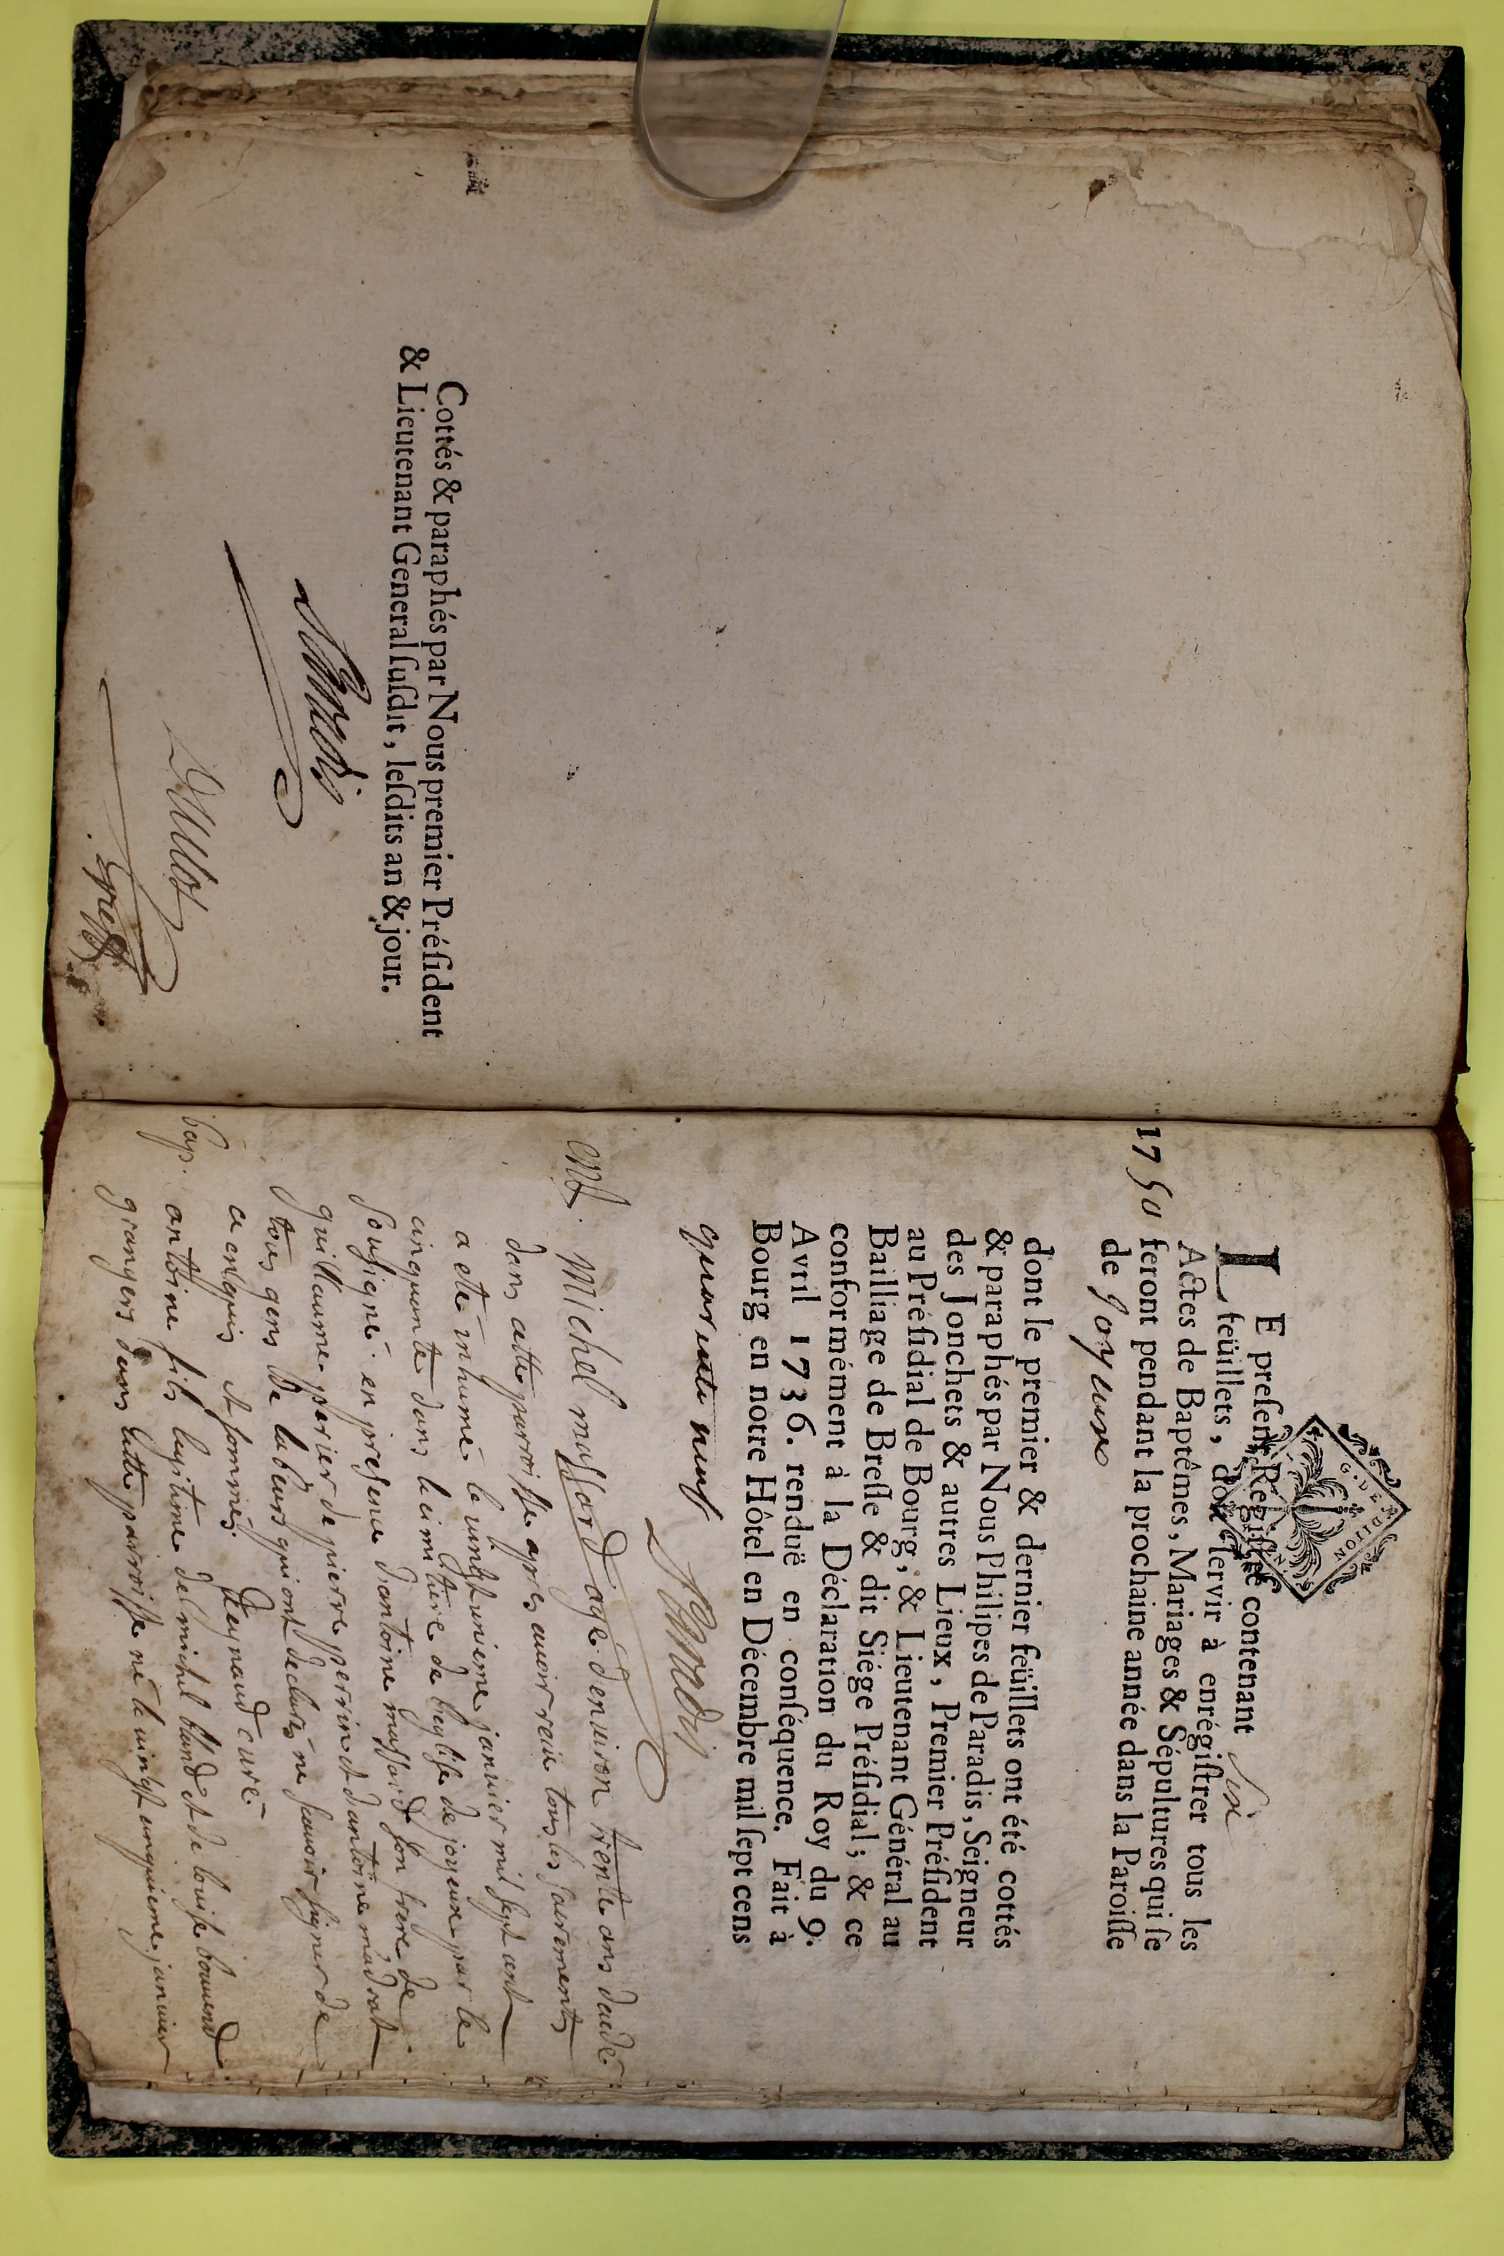 Cottés & paraphés par Nous premier Préſident
& Lieutenant General ſuſdit, leſdits an & jour.
greff
1750
LE preſent Regiſtre contenant six
feüillets, doit ſervir à enrégiſtrer tous les
Actes de Baptêmes, Mariages & Sépultures qui ſe
feront pendant la prochaine année dans la Paroiſſe
de Joyeux
dont le premier & dernier feüillets ont été cottés
& paraphés par Nous Philipes de Paradis, Seigneur
des Jonchets & autres Lieux, Premier Préſident
au Préſidial de Bourg, & Lieutenant Général au
Bailliage de Breſſe & dit Siége Préſidial; & ce
conformément à la Déclaration du Roy du 9.
Avril 1736. renduë en conſéquence. Fait à
Bourg en notre Hôtel en Décembre mil ſept cens
quarente neuf
Michel massard agé denviron trente ans
dans cette parroisse apres avoir receu tous les sacrements
a eté inhumé le vingt unieme janvier mil sept cent
cinquante dans le cimetiere de leglise de joyeux par le
soussigné en presence dantoine massard son frere de
guillaume perier de pierre perrin et dantoine
tous gens de labeurs qui ont declaré ne scavoir signer de
ce enquis et sommés. curé
bap. antoine fils legitime de michel et de louise
grangers dans cette parroisse né le vingt cinquieme janvier